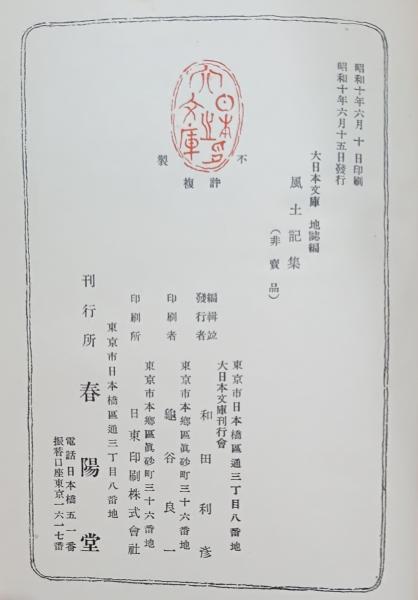 昭和十年六月十日印刷
昭和十年六月十五日發行
大日本文庫 地誌編
風土記集
(非賣品)
不許複製
大日本文庫之印
編輯竝
發行者
東京市日本橋區通三丁目八番地
大日本文庫刊行會
和田利彥
印刷者
東京市本鄕區眞砂町三十六番地
龜谷良一
印刷所
東京市本鄕區眞砂町三十六番地
日東印刷株式會社
刊行所
東京市日本橋區通三丁目八番地
春陽堂
電話日本橋五一番
振替口座東京一六一七番